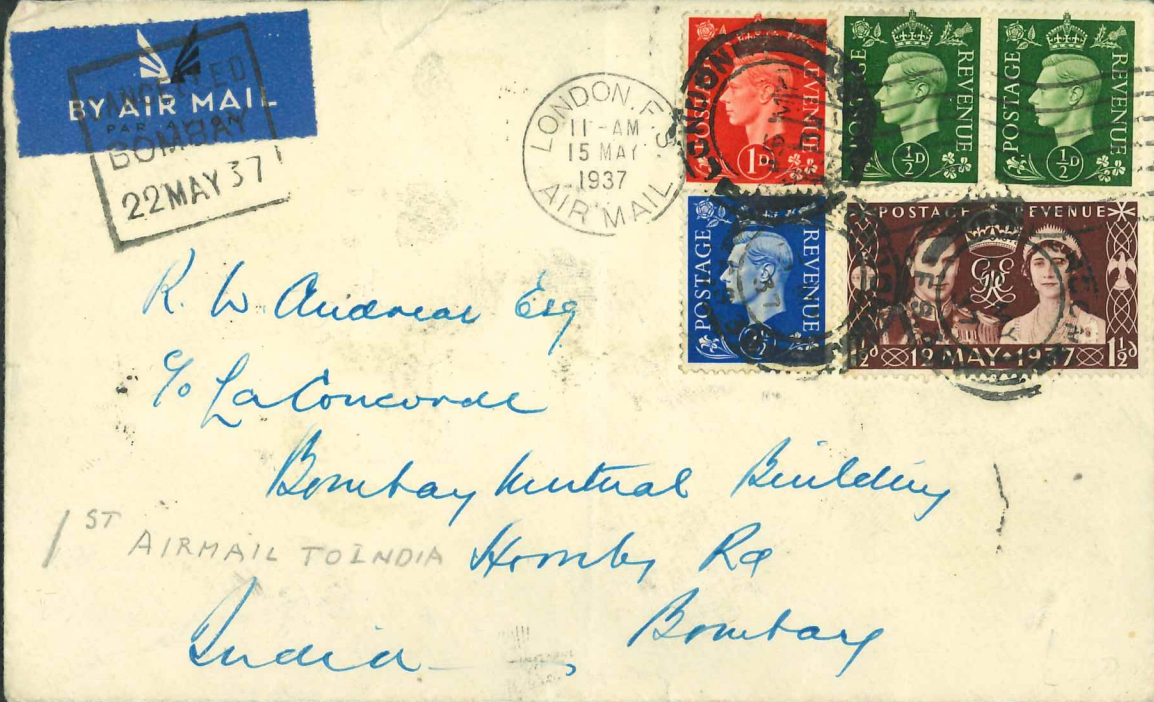 BY AIR MAIL
PAR AVION
BOMBAY
22 MAY 37
LONDON. F.S.
11-AM
15 MAY
1937
AIR MAIL
LONDON
POSTAGE REVENUE
1D
POSTAGE REVENUE
½D
POSTAGE REVENUE
½D
POSTAGE REVENUE
POSTAGE REVENUE
1½d 12 MAY · 1937 1½d
R. W. Andreae Esq
c/o La Concorde
Bombay Mutual Building
1ST AIRMAIL TO INDIA
Hornby Rd
Bombay
India